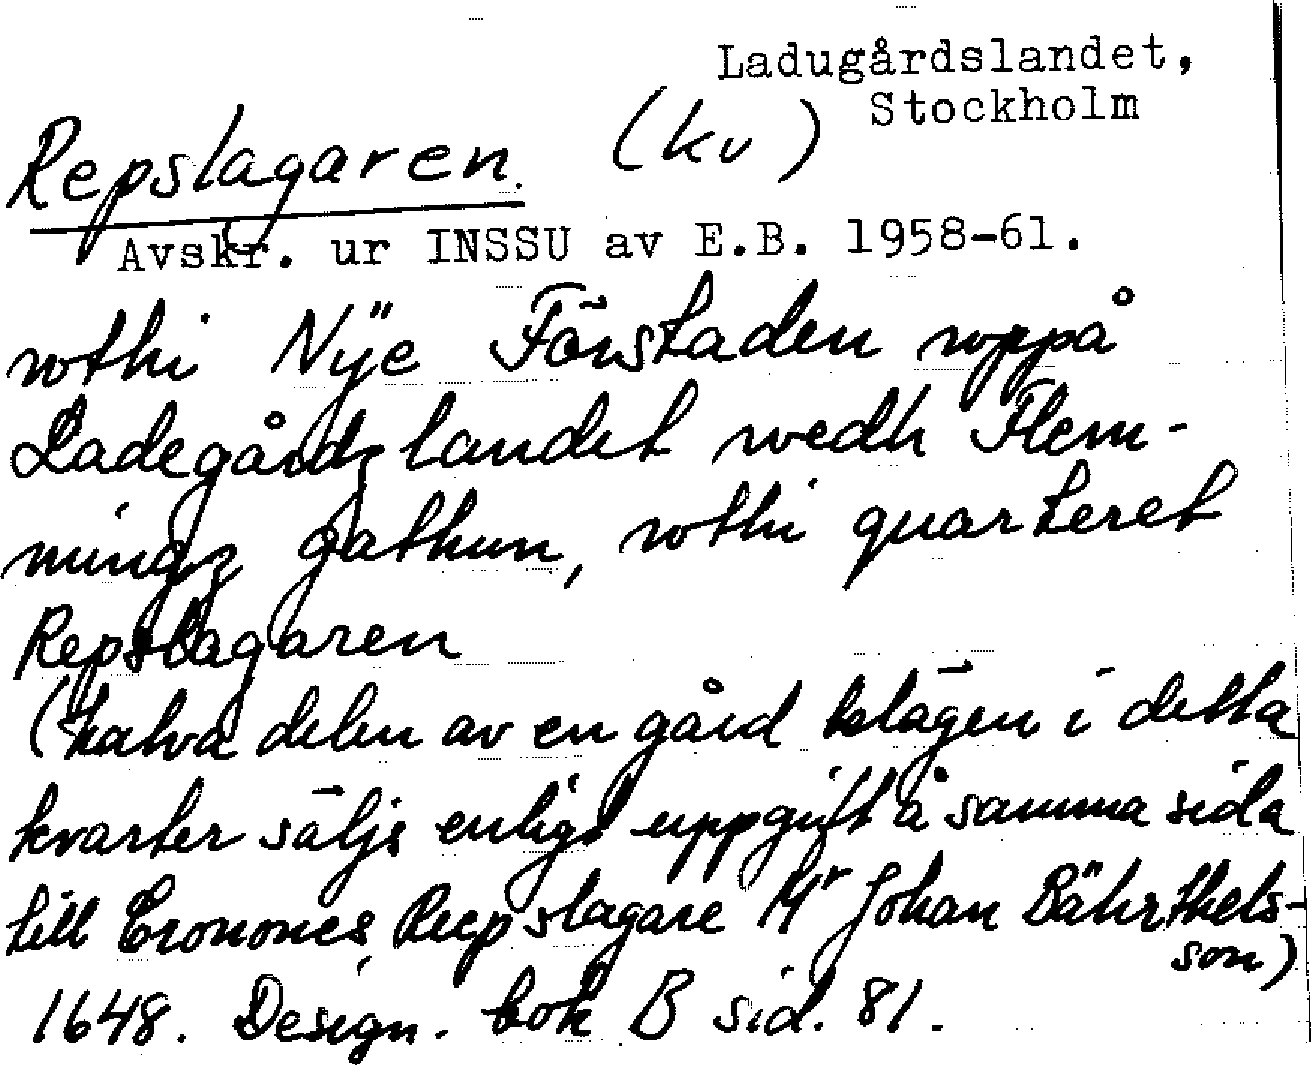 Ladugårdslandet,
Stockholm
Repslagaren (kv)
Avskr. ur INSSU av E.B. 1958-61.
wthi Nÿe Förstaden wppå
Ladegårdz landet wedh Flem-
mingz gathun, wthi quarteret
Repslagaren
(halva delen av en gård belägen i detta
kvarter säljs enligt uppgift å samma sida
till Cronones Reepslagare Mr Johan Bährthels-
son)
1648. Design. bok B sid. 81.